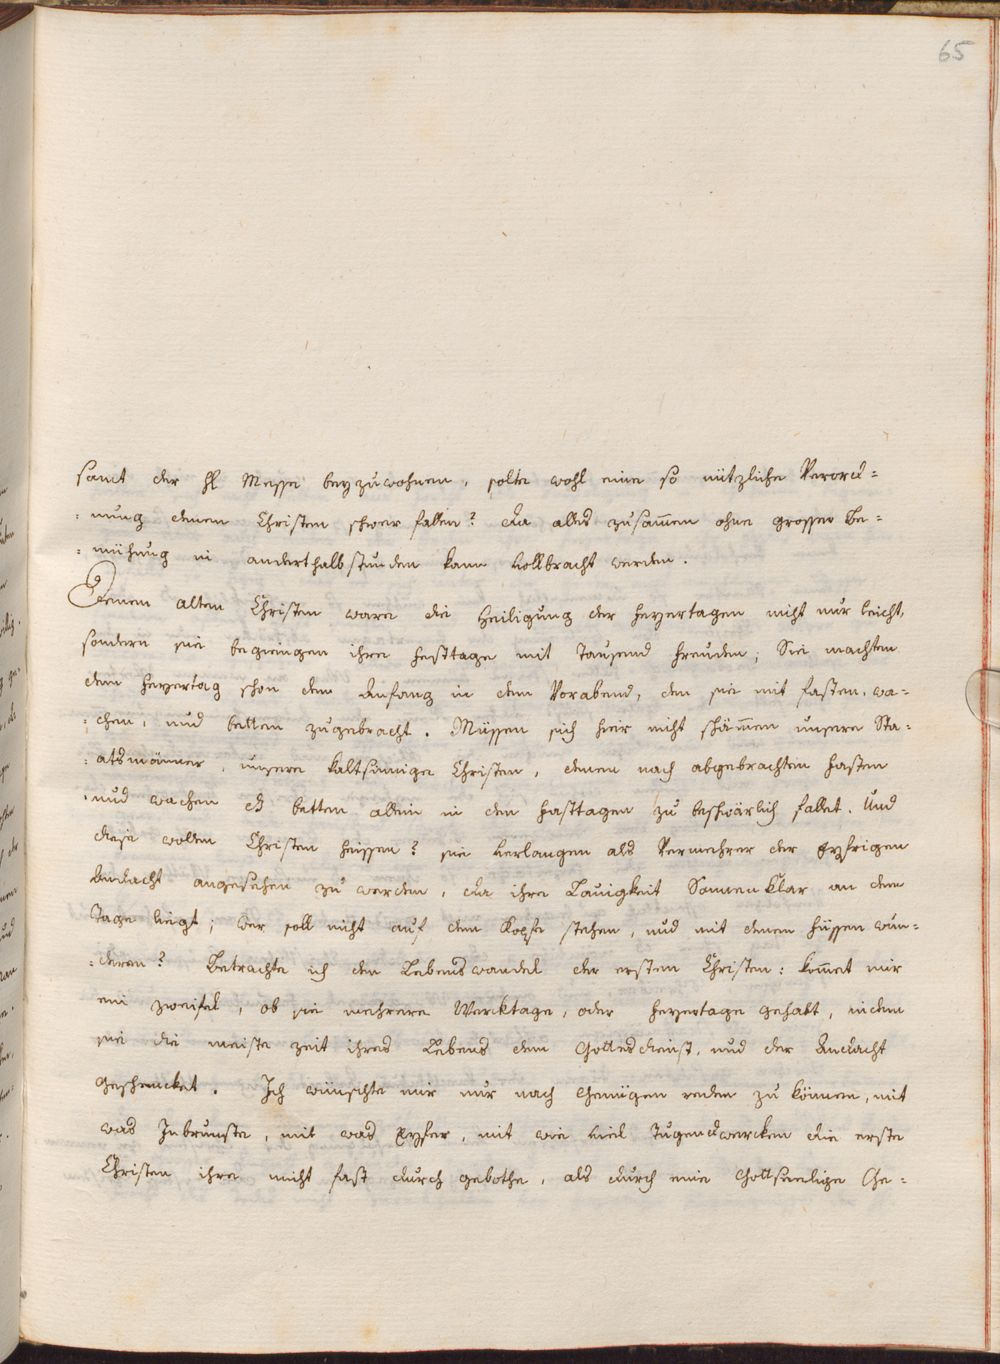 65
samt der hl Messe beyzuwohnen, solte wohl eine so nützliche Verord=
=nung denen Christen schwer fallen? da alles zusam̄en ohne grosser Be=
=mühung in anderthalb stunden kann vollbracht werden.
Denen alten Christen ware die Heiligung der feyertagen nicht nur leicht,
sondern sie begiengen ihre festtage mit tausend freuden; Sie machten
dem feyertag schon den Anfang in dem Vorabend, den sie mit fasten, wa=
=chen, und betten zugebracht. Müssen sich hier nicht schäm̄en unsere Sta=
=atsmänner, unsere kaltsinnige Christen, denen nach abgebrachten fasten
und wachen das betten allein in den fasttagen zu beschwärlich fallet. Und
diese wollen Christen heissen? sie verlangen als Vermehrer der Eyfrigen
Andacht angesehen zu werden, da ihre Lauigkeit Sonnenklar an dem
Tage liegt; wer soll nicht auf dem Kopfe stehen, und mit denen füssen wun=
=deren? Betrachte ich den Lebenswandel der ersten Christen: kom̄et mir
ein zweifel, ob sie mehrere Wercktage, oder feyertage gehabt, indem
sie die meiste zeit ihres Lebens dem Gottesdienst, und der Andacht
geschencket. Ich wünschte mir nur nach Genügen reden zu können, mit
was Inbrunste, mit was Eyfer, mit wie viel Tugendwercken die erste
Christen ihre nicht fast durch gebothe, als durch eine Gottseelige Ge=